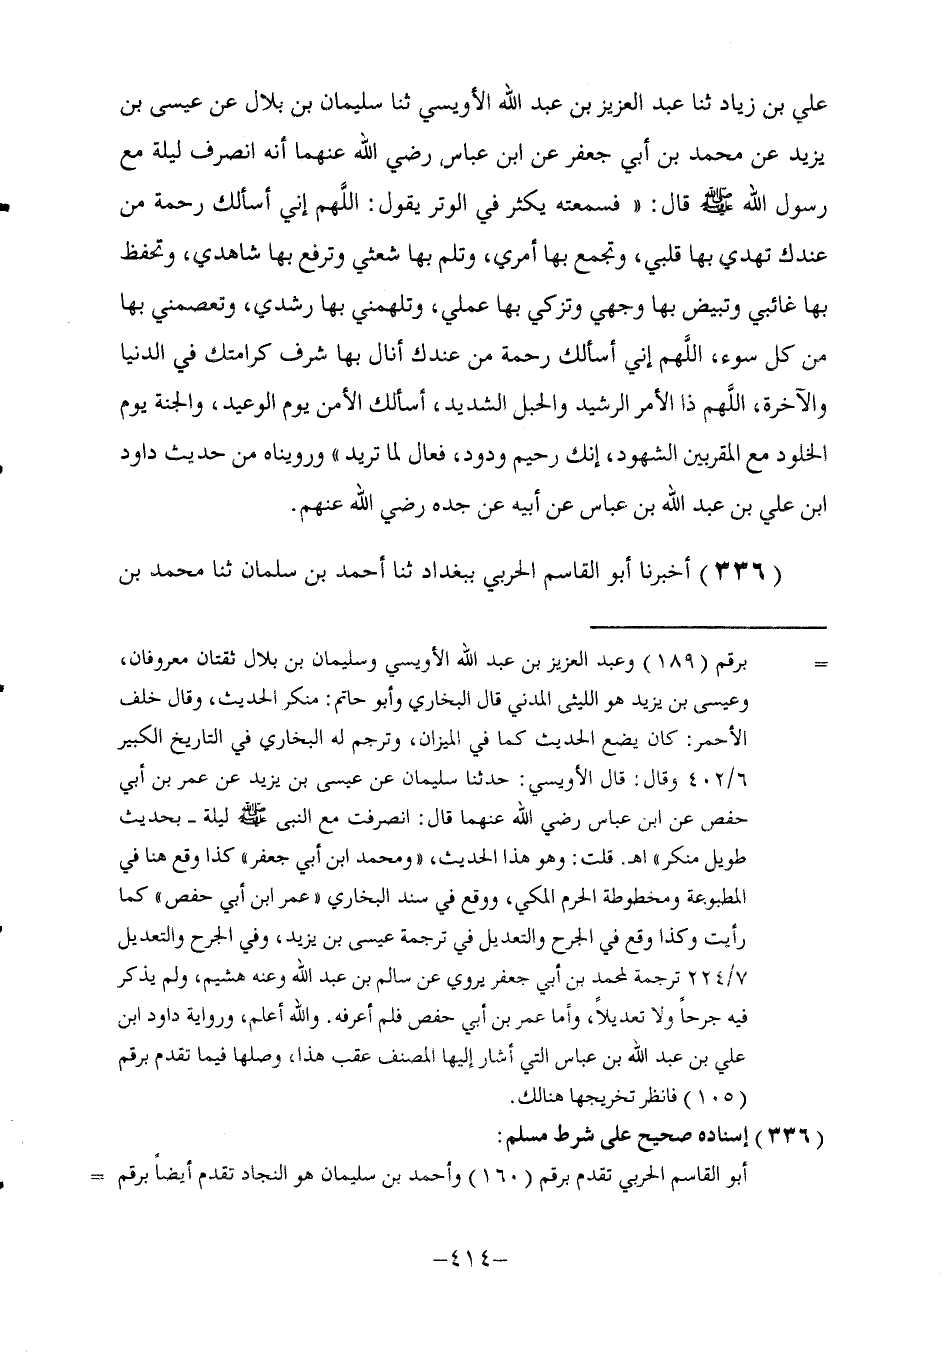 علي بن زياد ثنا عبد العزيز بن عبد الله الأويسي ثنا سليمان بن بلال عن عيسى بن
يزيد عن محمد بن أبي جعفر عن ابن عباس رضي الله عنهما أنه انصرف ليلة مع
رسول الله ﷺ قال: « فسمعته يكثر في الوتر يقول: اللَّهم إني أسألك رحمة من
عندك تهدي بها قلبي، وتجمع بها أمري، وتلم بها شعثي وترفع بها شاهدي، وتحفظ
بها غائبي وتبيض بها وجهي وتزكي بها عملي، وتلهمني بها رشدي، وتعصمني بها
من كل سوء، اللَّهم إني أسألك رحمة من عندك أنال بها شرف كرامتك في الدنيا
والآخرة، اللَّهم ذا الأمر الرشيد والحبل الشديد، أسألك الأمن يوم الوعيد، والجنة يوم
الخلود مع المقربين الشهود، إنك رحيم ودود، فعال لما تريد » ورويناه من حديث داود
ابن علي بن عبد الله بن عباس عن أبيه عن جده رضي الله عنهم.
(٣٣٦) أخبرنا أبو القاسم الحربي ببغداد ثنا أحمد بن سلمان ثنا محمد بن
= برقم (١٨٩) وعبد العزيز بن عبد الله الأويسي وسليمان بن بلال ثقتان معروفان،
وعيسى بن يزيد هو الليثي المدني قال البخاري وأبو حاتم: منكر الحديث، وقال خلف
الأحمر: كان يضع الحديث كما في الميزان، وترجم له البخاري في التاريخ الكبير
٤٠٢/٦ وقال: قال الأويسي: حدثنا سليمان عن عيسى بن يزيد عن عمر بن أبي
حفص عن ابن عباس رضي الله عنهما قال: انصرفت مع النبي ﷺ ليلة ـ بحديث
طويل منكر» اهـ. قلت: وهو هذا الحديث، «ومحمد ابن أبي جعفر» كذا وقع هنا في
المطبوعة ومخطوطة الحرم المكي، ووقع في سند البخاري «عمر ابن أبي حفص» كما
رأيت وكذا وقع في الجرح والتعديل في ترجمة عيسى بن يزيد، وفي الجرح والتعديل
٢٢٤/٧ ترجمة لمحمد بن أبي جعفر يروي عن سالم بن عبد الله وعنه هشيم، ولم يذكر
فيه جرحاً ولا تعديلاً، وأما عمر بن أبي حفص فلم أعرفه. والله أعلم، ورواية داود ابن
علي بن عبد الله بن عباس التي أشار إليها المصنف عقب هذا، وصلها فيما تقدم برقم
(١٠٥) فانظر تخريجها هنالك.
(٣٣٦) إسناده صحيح على شرط مسلم:
أبو القاسم الحربي تقدم برقم (١٦٠) وأحمد بن سليمان هو النجاد تقدم أيضاً برقم =
–٤١٤–